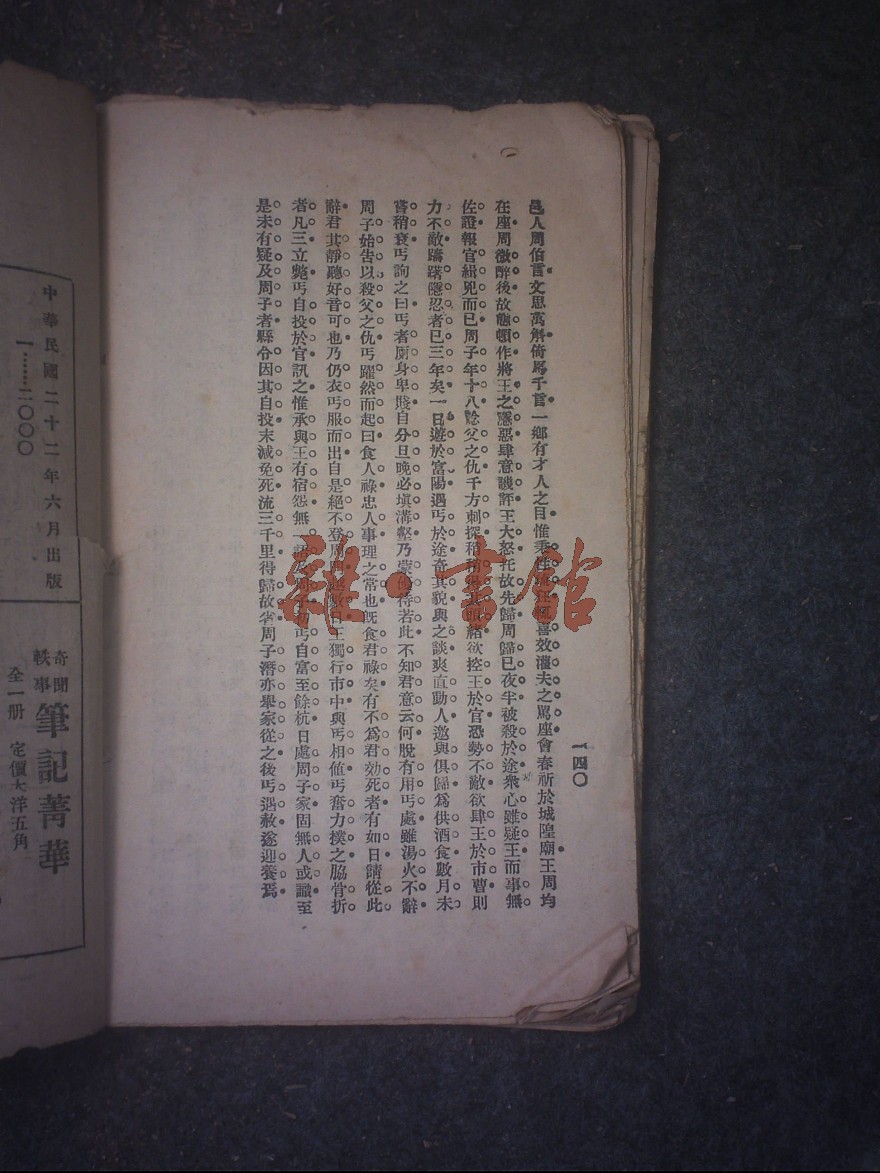 一四〇
邑人周伯言文思萬斛倚馬千言一鄉有才人之目惟秉性喜效灌夫之罵座會春祈於城隍廟王周均
在座周微醉後故態頓作將王之隱惡肆意譏評王大怒托故先歸周歸已夜半被殺於途衆心雖疑王而事無
佐證報官緝兇而已周子年十八念父之仇千方刺探稍緒欲控王於官恐勢不敵欲肆王於市曹則
力不敵躊躇隱忍者已三年矣一日遊於富陽遇丐於途奇其貌與之談爽直動人邀與俱歸爲供酒食數月未
嘗稍衰丐詢之曰丐者廁身卑賤自分旦晚必塡溝壑乃蒙待若此不知君意云何脫有用丐處雖湯火不辭
周子始告以殺父之仇丐躍然而起曰食人祿忠人事理之常也既食君祿矣有不爲君効死者有如日請從此
辭君其靜聽好音可也乃仍衣丐服而出自是絕不登周數日王獨行市中與丐相値丐奮力撲之脇骨折
者凡三立斃丐自投於官訊之惟承與王有宿怨無一語及周子初丐自富至餘杭日處周子家固無人或識至
是未有疑及周子者縣令因其自投末減免死流三千里得歸故周子潛亦舉家從之後丐遇赦遂迎養焉
中華民國二十二年六月出版
一……二〇〇〇
奇聞軼事筆記菁華
全一册 定價大洋五角
雜·書館